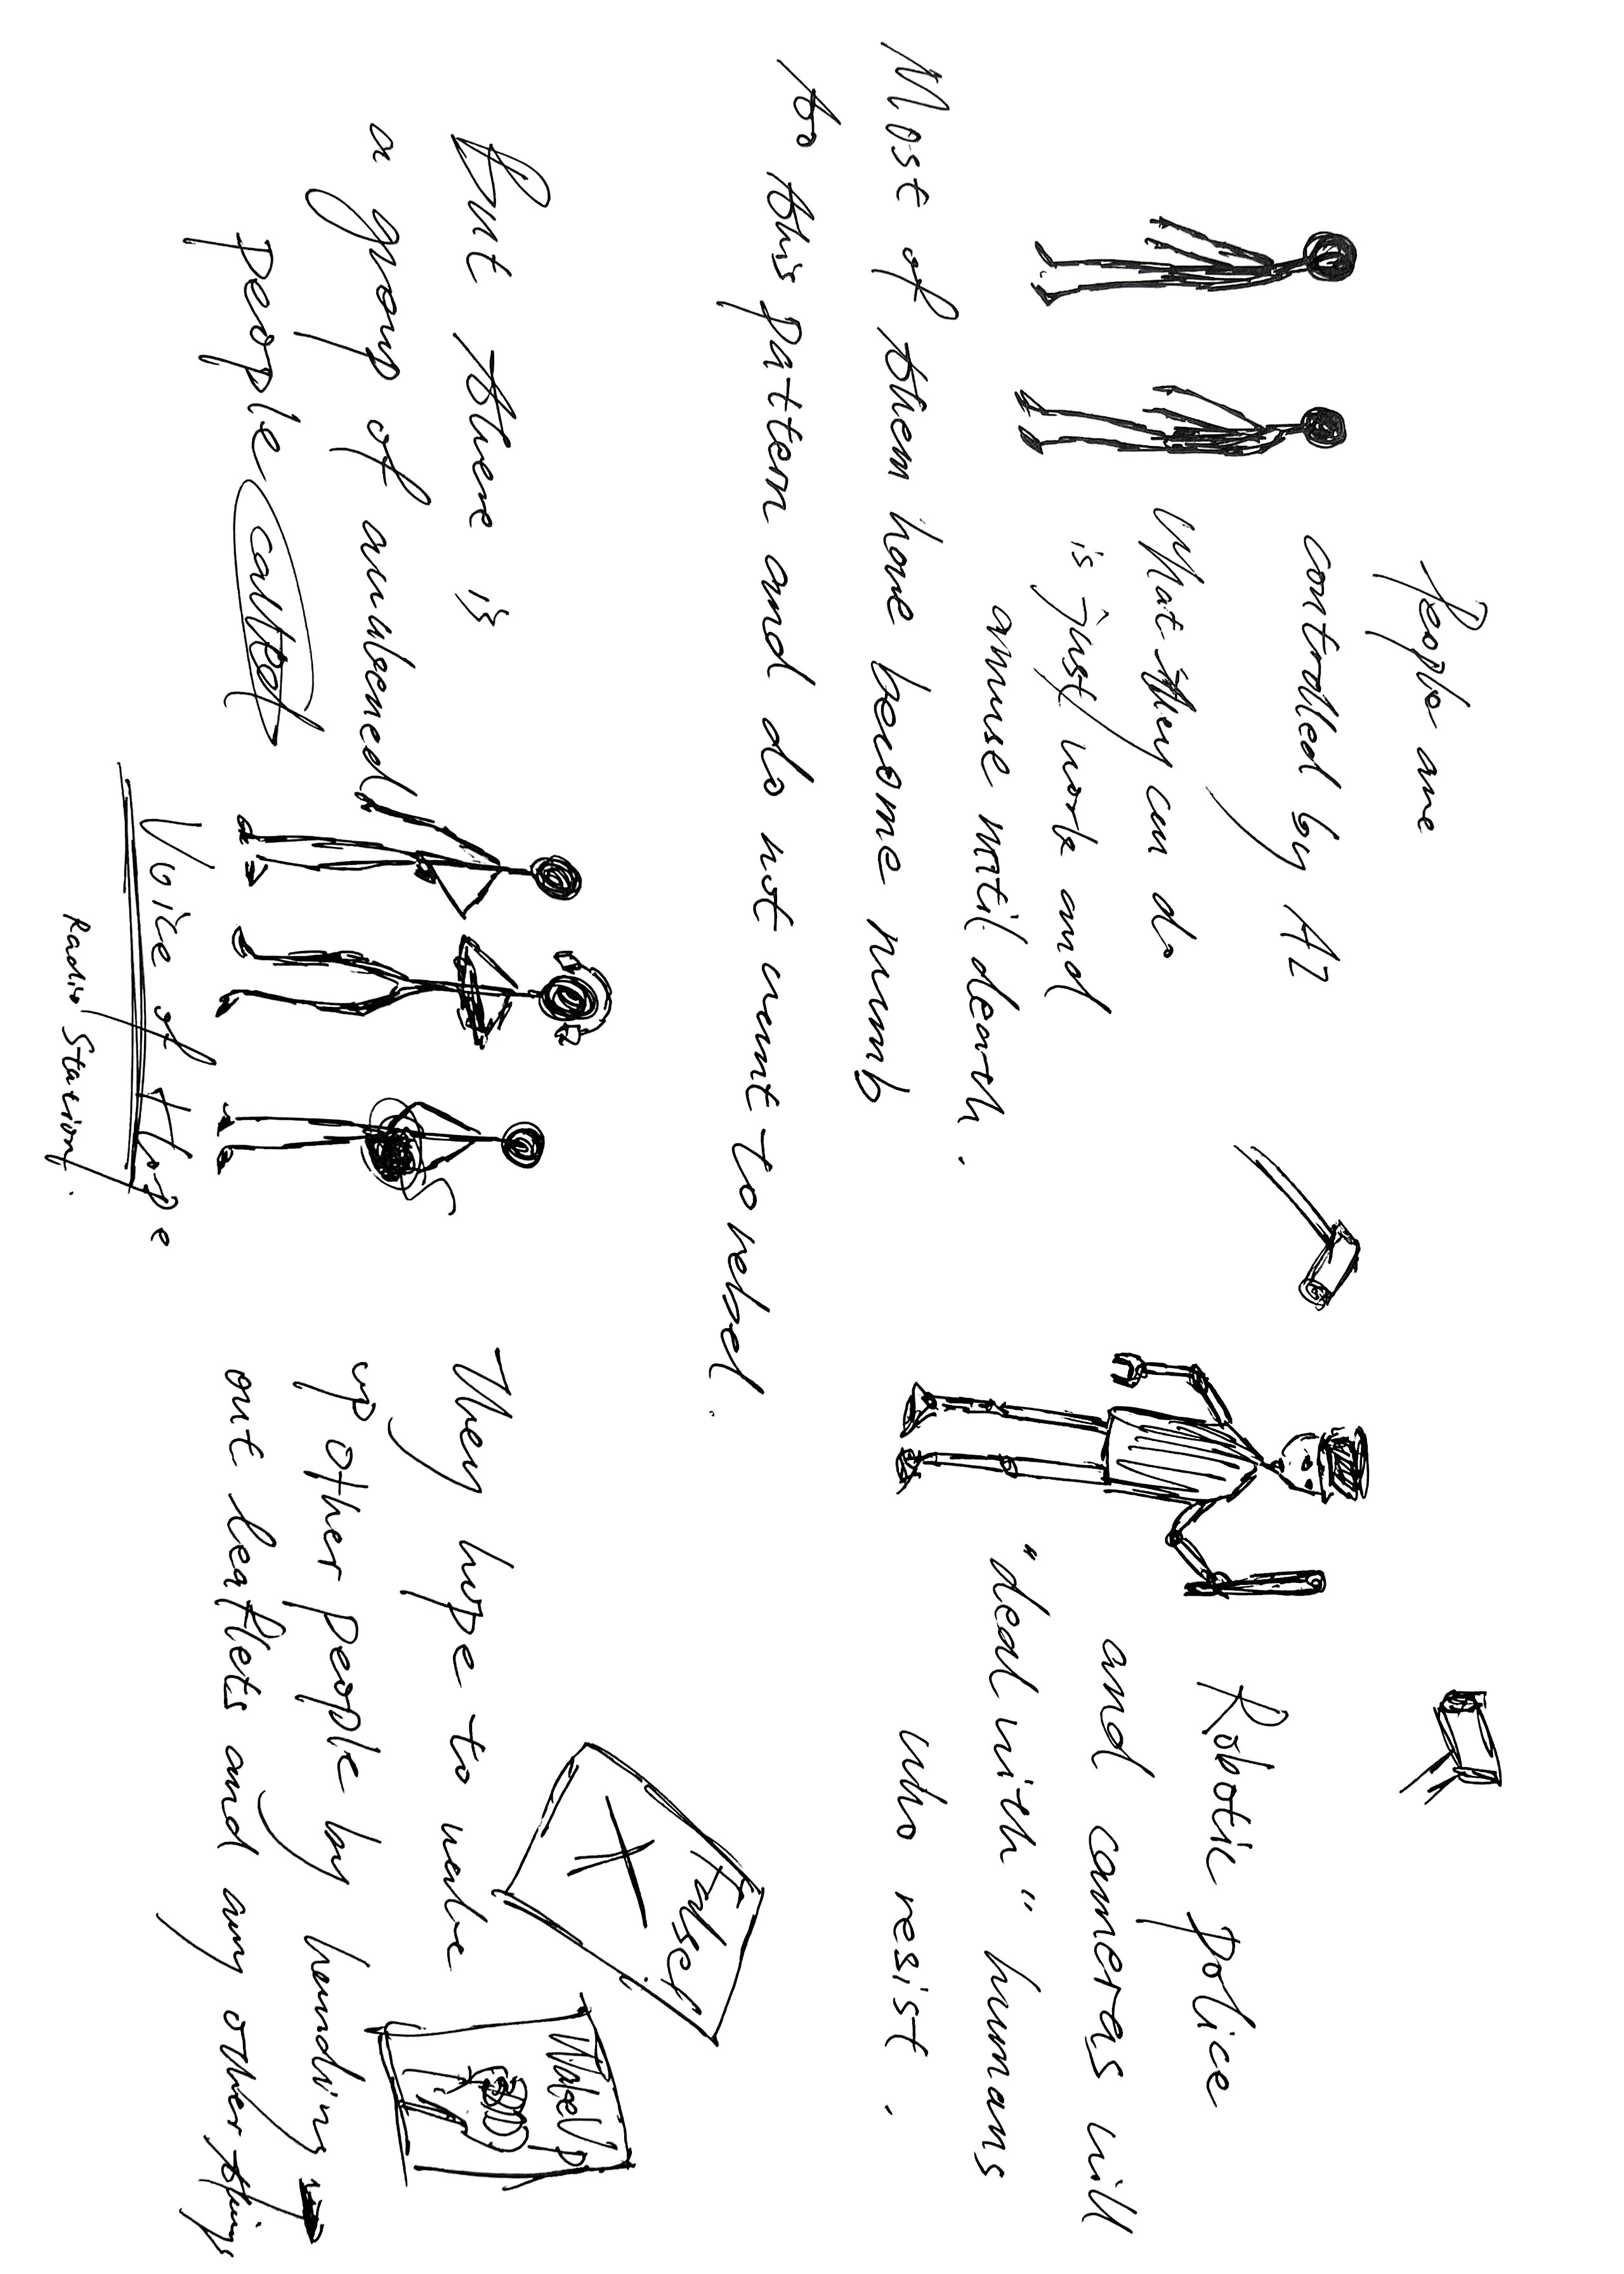 People are
controlled by AI
What they can do
is just work and
amuse until death.
Most of them have become numb
to this pattern and do not want to rebel.
Robotic police
and cameras will
"deal with" humans
who resist.
But there is
a group of
people called
Voice of Hope
Radio Station.
They hope to wake
up other people by handing
out leaflets and any other things
False!
Wake Up